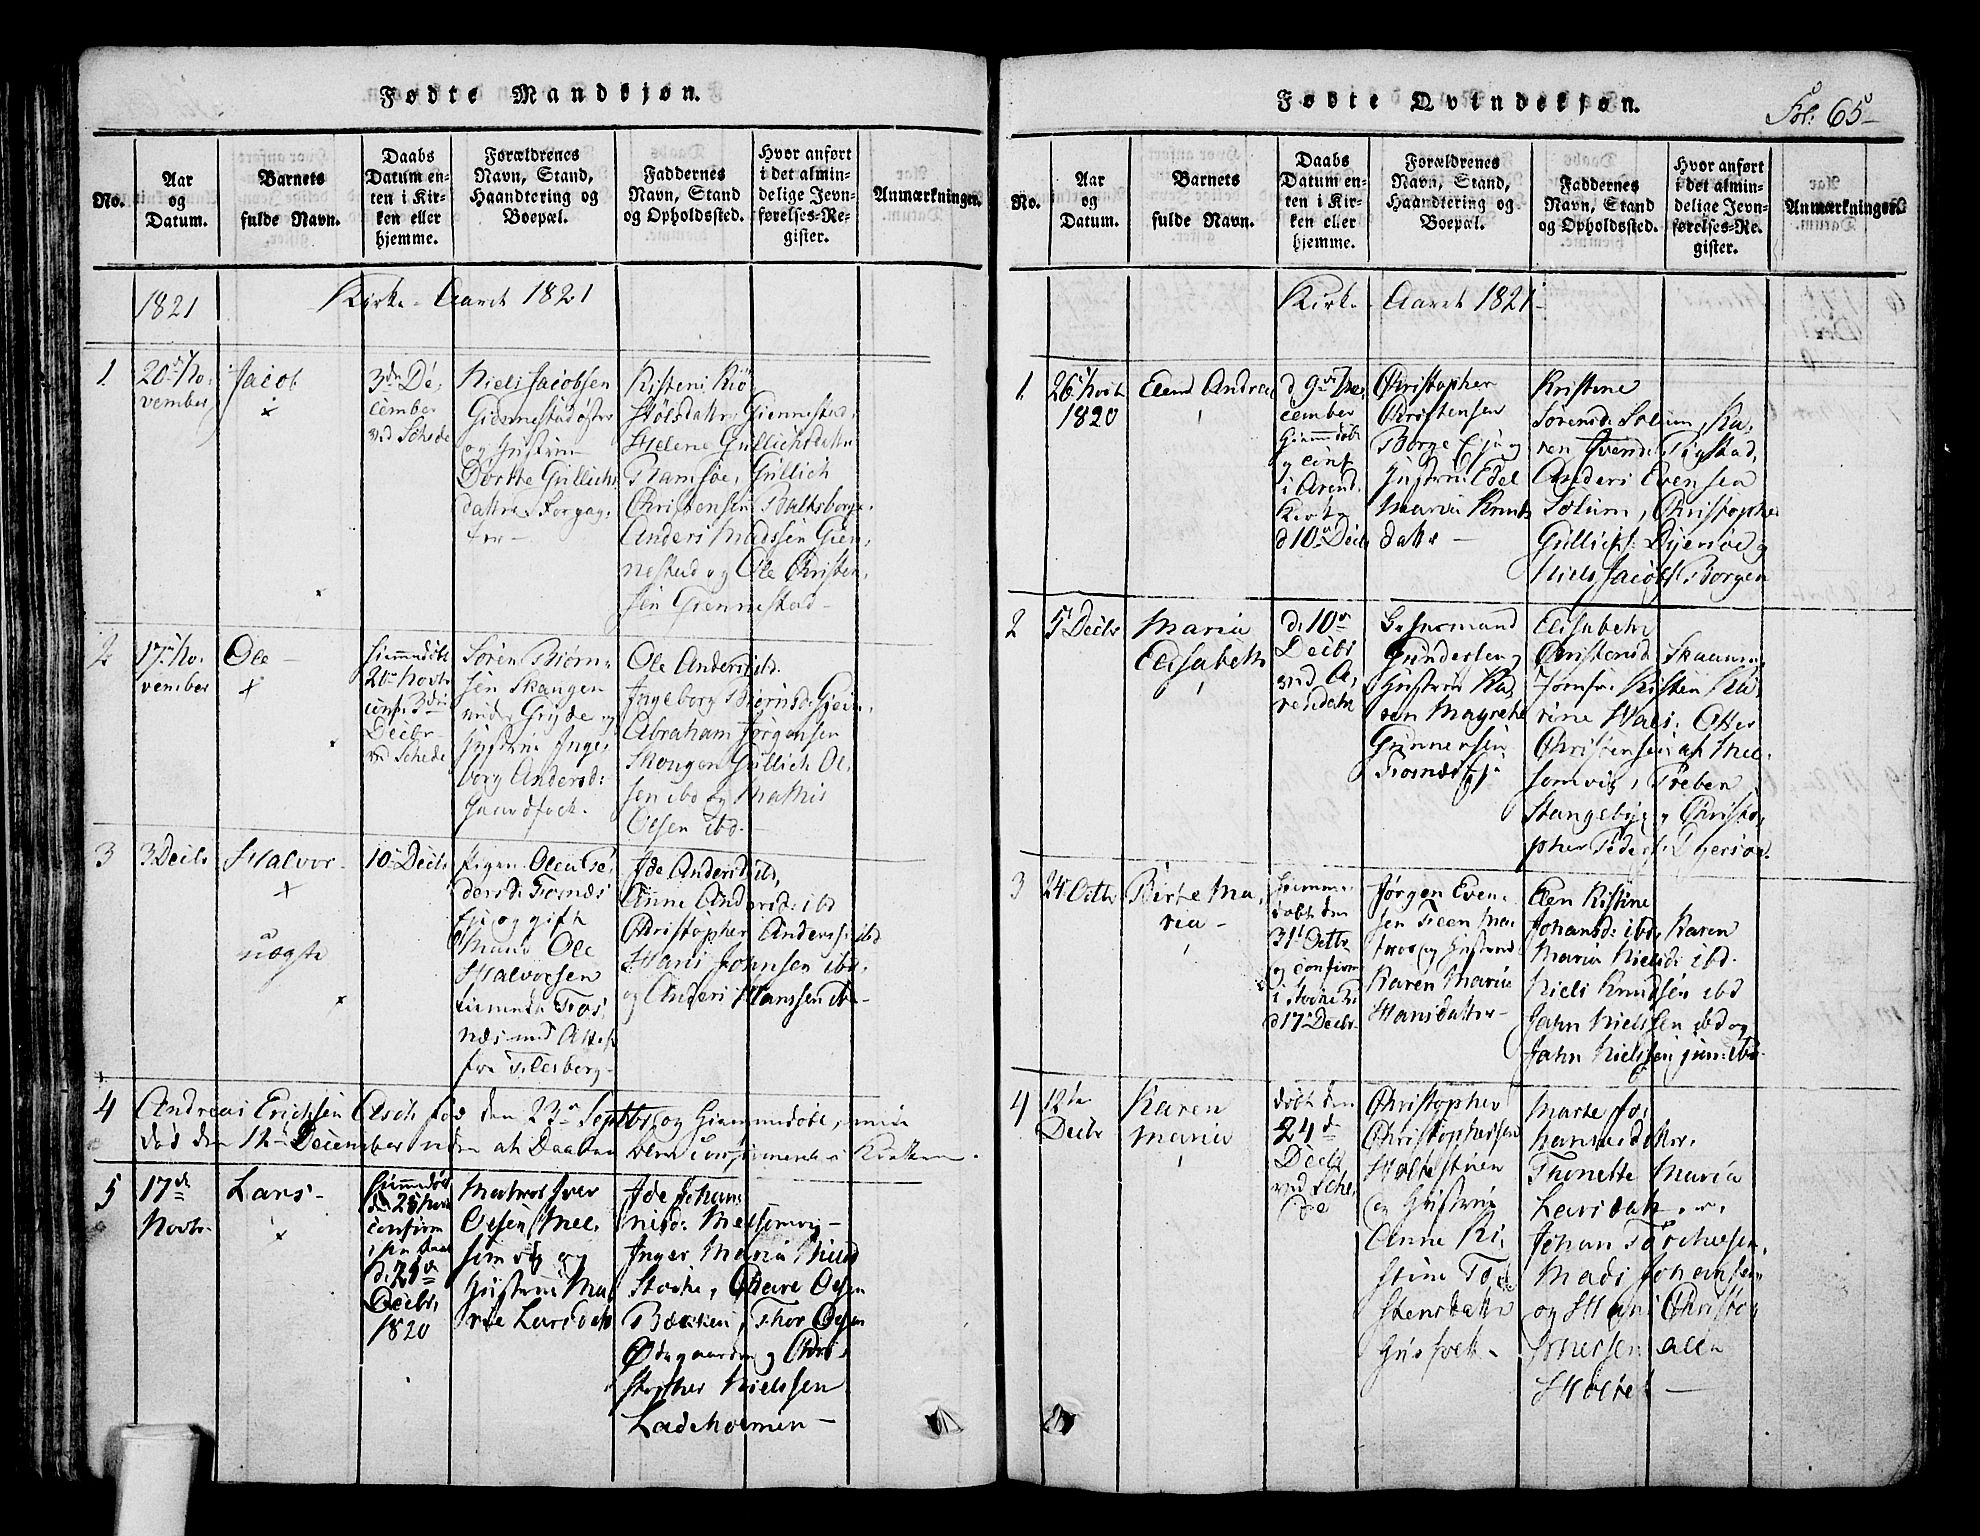 Fødte Mandkjøn.
No.
Aar
og
Datum.
Barnets
fulde Navn.
Daabs
Datum en-
ten i Kir-
ken eller
hjemme.
Forældrenes
Navn, Stand,
Haandtering og
Boepæl.
Faddernes
Navn, Stand
og Opholdssted.
Hvor anført
i det almin-
delige Jevn-
førelses-Re-
gister.
Anmærkninger.
1821
Kirke-Aaret 1821
1.
20de No-
vember
Jacob
3die De-
cember
ved Schede
Niels Jacobsen
Giennestad østre
og Hustrue
Dorthe Gullichs
datter
Kistene
Helene Gullichsdatter
Ramsøe, Gullich
Christensen
Anders Madssen Gien-
nestad og Ole Christen-
sen Giennestad-
2
17de No-
vember
Ole-
Hiemmedøbt
20de Novbr
conf. 3die
Decbr
ved Schede
Søren Biørn-
sen Skaugen
under Gryde og
Hustrue Inge-
borg Andersd:
Gaardfolk.
Ole Andersen ibd.
Ingeborg Biørnsd:
Abraham Jørgensen
Skougen Gullich Ol-
sen ibd og Mathis
Olsen ibd.-
3
3 Decbr
Halvor-
uægte
10 Decbr
Pigen Olea Pe-
dersd: Fosnæs
og gift
Mand Ole
Halvorsen
Fos-
næs med Attest
fra Flesberg-
Ide Andersd: ibd,
Anne Andersd: ibd
Christopher Anders: ibd
Hans Johnsen ibd
og Anders Hanssen ibd-
4
Andreas Erichsen Asch fød den 23de Septbr, og Hiemmedøbt, men
død den 12te December uden at Daaben blev confirmeret i Kirken.
5
17de
Novbr
Lars-
Hiemmedøbt
d. 25 Novbr
confirm
d. 26de
Decbr,
1820
Matros Iver
Olsen Mel-
somvig og
Hustrue Ma-
rie Larsdatt
Ide Johan-
nisd: Melsomvig-
Inger Maria Nielsd
Stocke, Olave Olsen
Bækken, Thor Olsen
Ødegaarden og Chri-
stopher Nielssen
Ladeholmen-
Fødte Qvindekjøn.
Fol: 65-
No.
Aar
og
Datum.
Barnets
fulde Navn.
Daabs
Datum en-
ten i Kir-
ken eller
hjemme.
Forældrenes
Navn, Stand,
Haandtering og
Boepæl.
Faddernes
Navn, Stand
og Opholdssted.
Hvor anført
i det almin-
delige Jevn-
førelses-Re-
gister.
Anmærkninger.
Kirke-Aaret 1821-
1.
26 Novbr
1820
Elen Andrea
d 9de De-
cember
Hiemmedøbt
og conf
i Arend.
Kirke
d 10 Decbr
Christopher
Christensen
Borge Eje og
Hustrue Edel
Maria Knuds
datter-
Kristine
Sørensd: Solum, Ka-
ren Evensd:
Anders Evensen
Solum, Christopher
Gullichs: Dyersøe og
Niels Jacobs: Borgen
2
5 Decbr
Maria
Elisabeth
d: 10de
Decbr
ved A-
rendahl
Gunderss: og
Hustrue Ka-
ren Magrethe
Gunnersen
Fosnæs Eje
Elisabeth
Christensd: Skaum,
Jomfru Kisten Ka-
rine Wals: Otter
Christensen af Mel-
somvig, Preben
Stangebye, Christo-
pher Peders: Dyersøe.
3
24 Octbr
Birte Ma-
ria-
Hiemme-
døbt den
31te Octbr
og confirm
i Stocke K.
d 17de Decbr-
Jørgen Even-
sen Feen Ma-
tros og Hustrue
Karen Maria
Hansdatter-
Elen Kistine
Johansd: ibd. Karen
Maria Nielsd: ibd.
Niels Knudsen ibd
Jahn Nielsen ibd og
Jahn Nielssen jun: ibd.
4
12te
Decbr
Karen
Maria
døbt den
24de
Decbr
ved Sche-
de
Christopher
Christophersen
Holtestuen
og Hustrue
Anne Ki-
stine To-
stensdatter
Huusfolk-
Marte Jo-
hannesdatter,
Thonette Maria
Larsdatter,
Johan
Mads Johansen
og Hans Christo-
phersen alle
Holtet-